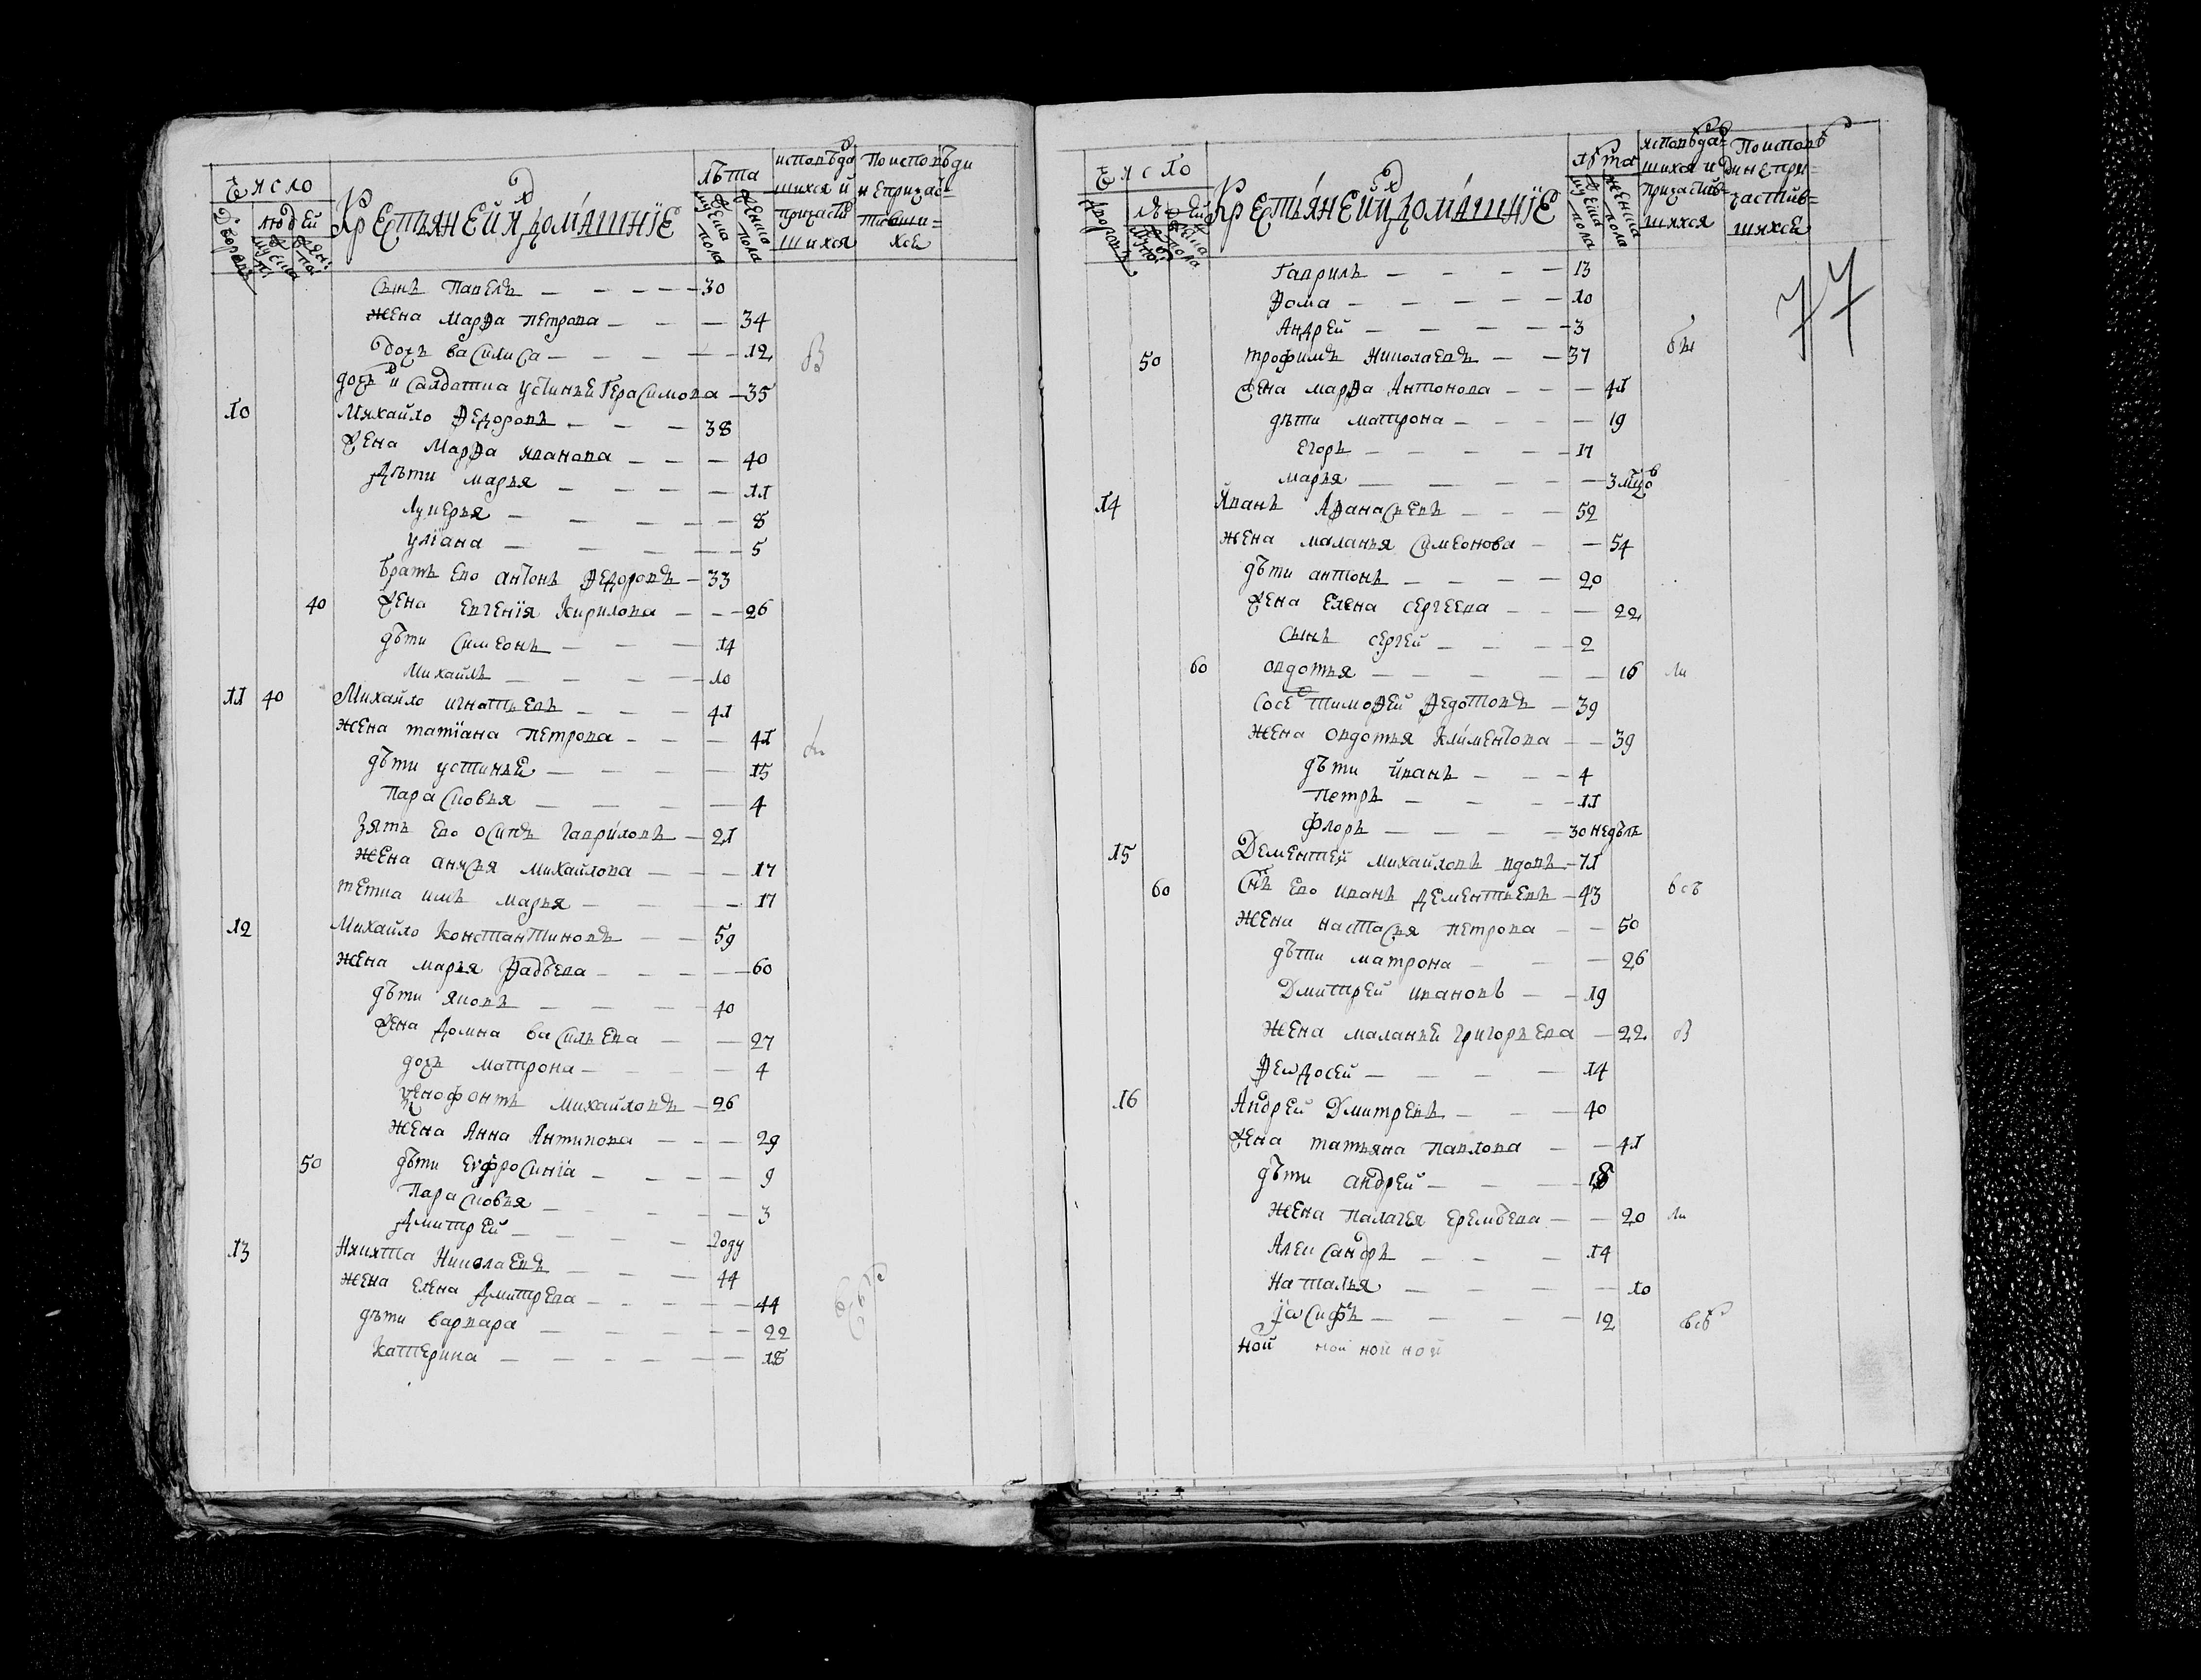 Число
Дворовъ
людей
мужеска
женс
Крестьяне и ихъ домашнїе
лѣта
мужеска пола
женска пола
исповѣдавшихся и причастившихся
По исповѣди не причастившихся
Сынъ Павелъ — — — — 30
Жена Марѳа Петрова — — — 34
дочь Василиса — — — — 12
дочь и салдатка Устинья Герасимова — 35
10 Михайло Ѳедоровъ — — — 38
Жена Марѳа Иванова — — — 40
Дѣти Марья — — — — 11
Лукерья — — — — — 8
Улїана — — — — — 5
братъ ево антонъ Ѳедоровъ — 33
40 Жена Евгенїя Кирилова — — — 26
дѣти Симеонъ — — — — 14
Михайлъ — — — — 10
11 40 Михайло игнатьевъ — — — 41
Жена татїана Петрова — — — 41
дѣти устинья — — — — 15
Парасковья — — — — 4
Зять ево осипъ гавриловъ — 21
Жена анисья Михайлова — — — 17
тетка имъ марья — — — — 17
12 Михайло Константиновъ — — 59
Жена марья Ѳадѣева — — — — 60
дѣти яковъ — — — — 40
Жена домна васильева — — 27
дочь матрона — — — — 4
Ѯенофонтъ Михайловъ — 26
Жена Анна Антипова — — — 29
50 дѣти Еѵфросинїа — — — — 9
Парасковья — — — — 3
Дмитрей — — — — году
13 Никита Николаевъ — — — 44
Жена Елена Дмитрева — — — — 44
дѣти варвара — — — — 22
Катерина — — — — — 18
Число
Дворовъ
людей
мужеска пола
женска пола
Крестьяне и ихъ домашнїе
лѣта
мужеска пола
женска пола
исповѣдавшихся и причастившихся
По исповѣди не причастившихся
77
Гаврилъ — — — — 13
Ѳома — — — — — 10
Андрей — — — — 3
50 трофимъ Николаевъ — — 37
Жена марѳа Антонова — — — 41
дѣти матрона — — — — 19
Егоръ — — — — — 17
марья — — — — — 3 мцов
14 Иванъ Аѳанасьевъ — — — 52
Жена маланья Симеонова — — 54
дѣти антонъ — — — — 20
Жена Елена сергеева — — — 22
Сынъ сергей — — — — 2
60 овдотья — — — — — 16
Сосе тимоѳей Ѳедотовъ — 39
Жена овдотья Климентова — — 39
дѣти иванъ — — — 4
Петръ — — — — 11
Флоръ — — — — 30 недѣль
15 Дементей Михайловъ вдовъ — 71
60 Снъ ево иванъ дементьевъ — 43
Жена настасья петрова — — 50
дѣти матрона — — — 26
Дмитрей ивановъ — — 19
Жена маланья григорьева — 22
Ѳеѡдосей — — — — 14
16 Андрей Дмитревъ — — — 40
Жена татьяна Павлова — — 41
дѣти андрей — — — — 18
Жена палагея еремѣева — — 20
Александръ — — — 14
Наталья — — — — 10
Іѡсифъ — — — — 12
ной ной ной ной